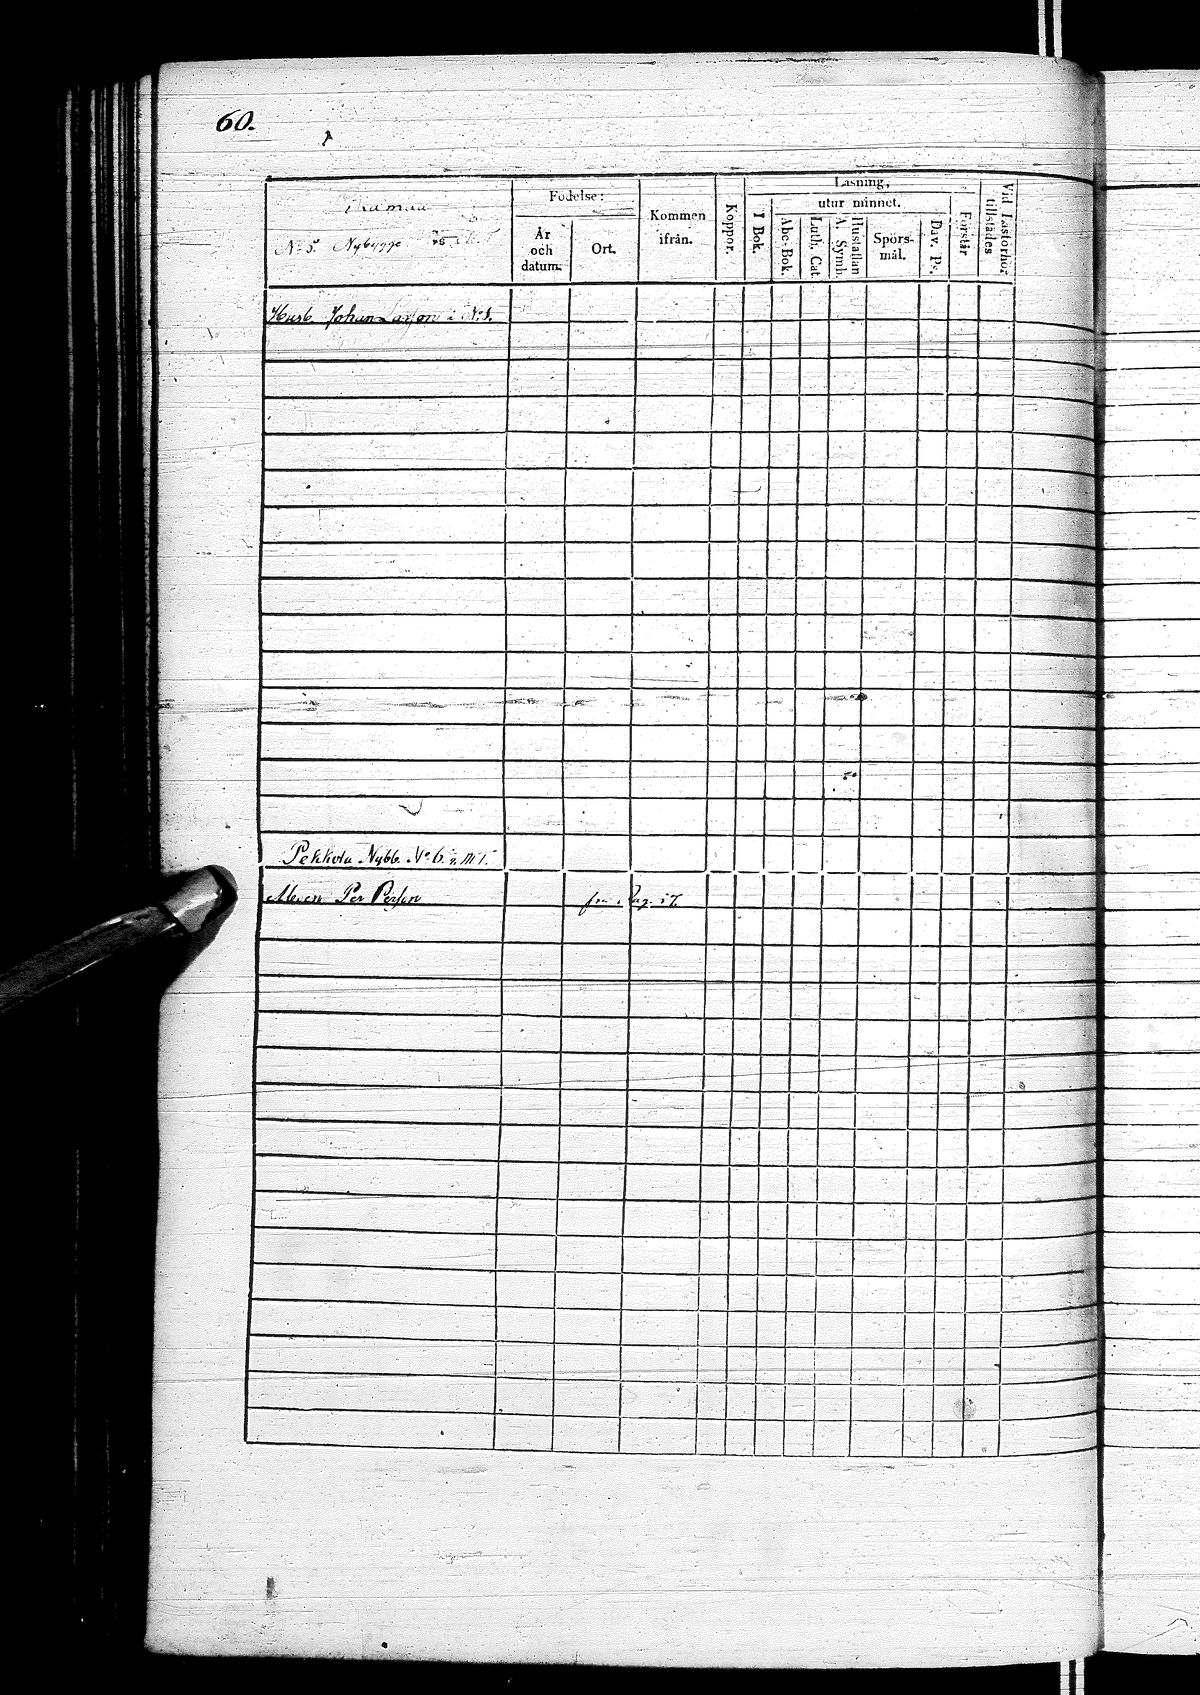 60.
No 5 Nybygge
Födelse:
År och datum.
Ort.
Kommen ifrån.
Koppor.
Läsning,
utur minnet.
I Bok.
Abc-Bok.
Luth. Cat.
Hustaflan A. Symb.
Spörs-mål.
Dav. Ps.
Förstår
Vid Läsförhör tillstädes
Husb. Johan Larsson i No 1.
Pekkola Nybb. No 6.
Per Persson